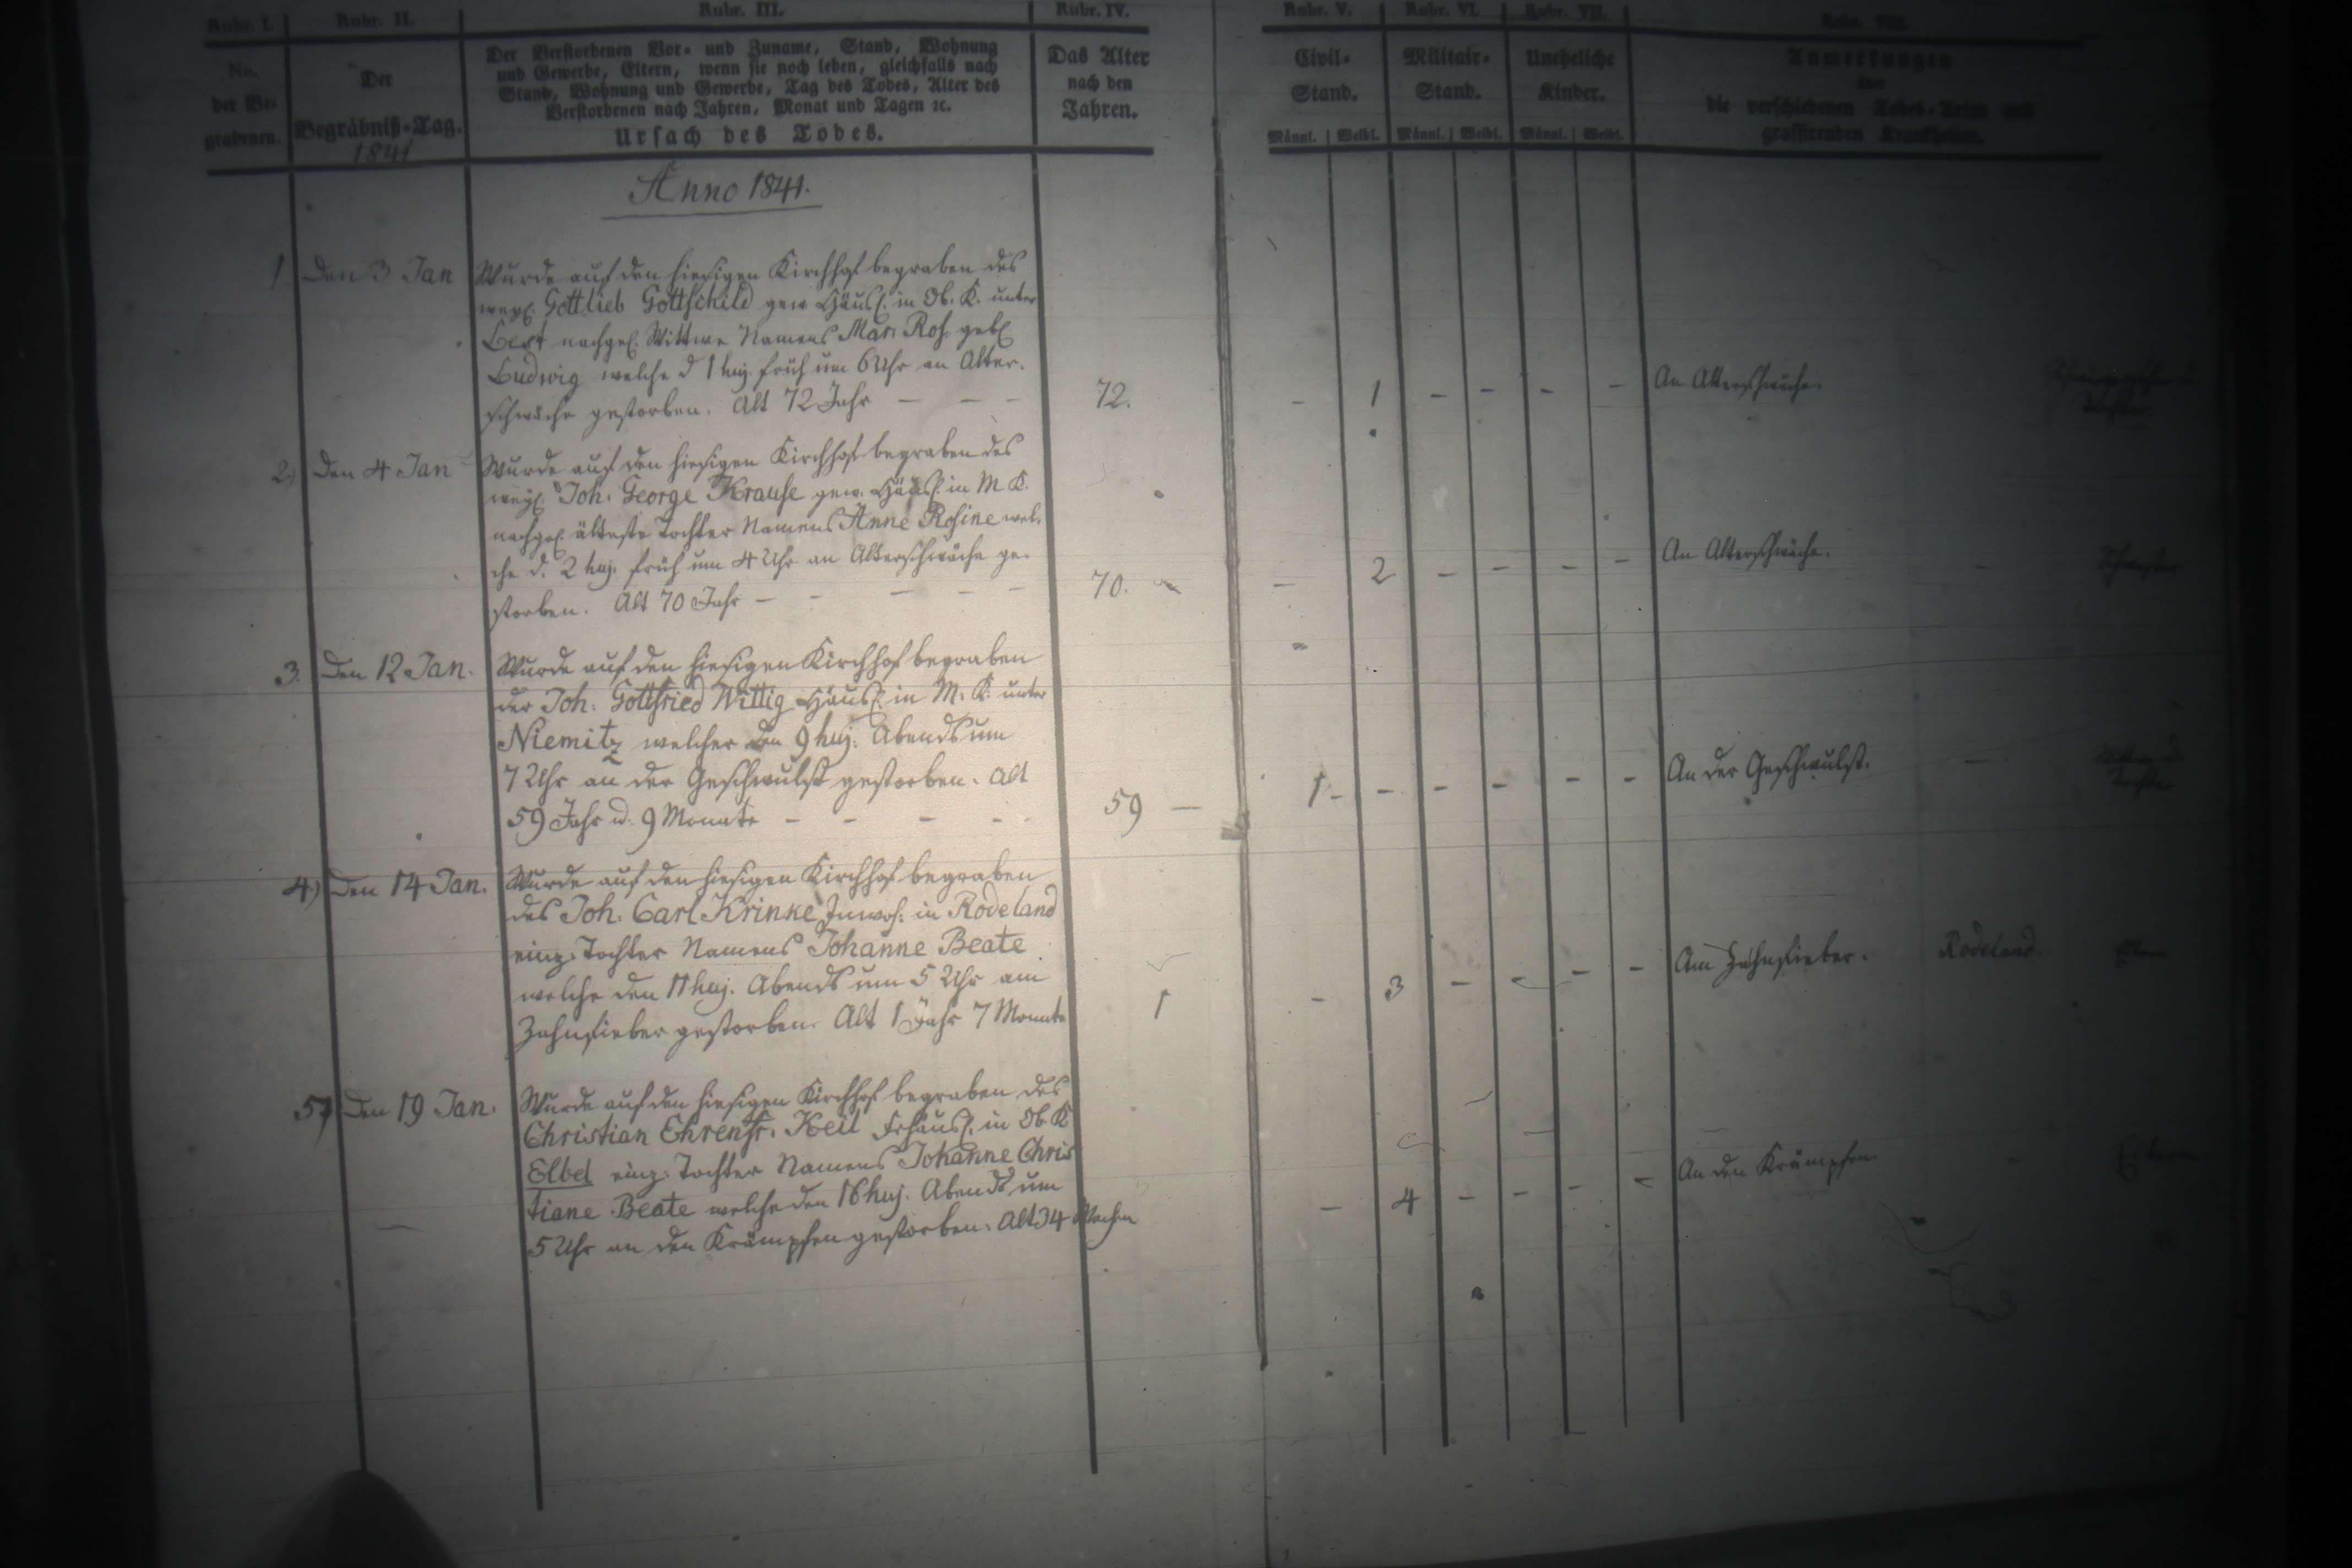 Rubr. I.
Rubr. II.
Rubr. III.
Rubr. IV.
Rubr. V.
Rubr. VI.
Rubr. VII.
Rubr. VIII.
No.
der Be-
grabenen.
Der
Begräbniß-Tag.
1841
Der Verstorbenen Vor- und Zuname, Stand, Wohnung
und Gewerbe, Eltern, wenn sie noch leben, gleichfalls nach
Stand, Wohnung und Gewerbe, Tag des Todes, Alter des
Verstorbenen nach Jahren, Monat und Tagen ꝛc.
Ursach des Todes.
Das Alter
nach den
Jahren.
Civil-
Stand.
Männl. Weibl.
Militair-
Stand.
Männl. Weibl.
Uneheliche
Kinder.
Männl. Weibl.
Anmerkungen
über
die verschiedenen Todes-Arten und
grassirenden Krankheiten.
Anno 1841.
1. Den 3 Jan
Wurde auf den hiesigen Kirchhof begraben des
weyl. Gottlieb Gottschild gew Häusl. in Ob. K. unter
nachgel. Wittwe Namens Mar. Ros. gebl
Ludwig welche d 1 huj. früh um 6 Uhr an Alter-
schwäche gestorben. Alt 72 Jahr – – –
72. – 1 – – – –
An Alterschwäche.
2.) Den 4 Jan
Wurde auf den hiesigen Kirchhof begraben des
weyl. Joh. George Krause gew. Häusl. in M K.
nachgel. älteste Tochter Namens Anne Rosine wel-
che d. 2 huj. früh um 4 Uhr an Alterschwäche ge-
storben. Alt 70 Jahr – – – – –
70. – 2 – – – –
An Alterschwäche. –
Schwester
3. Den 12 Jan.
Wurde auf den hiesigen Kirchhof begraben
der Joh. Gottfried Wittig Häusl. in M. K. unter
Niemitz welcher den 9 huj. Abends um
7 Uhr an der Geschwulst gestorben. Alt
59 Jahr u. 9 Monate – – – –
59 – 1 – – – – – –
An der Geschwulst. –
4.) Den 14 Jan.
Wurde auf den hiesigen Kirchhof begraben
des Joh. Carl Krinke Inwoh. in Rodeland
einz. Tochter Namens Johanne Beate
welche den 11 huj. Abends um 5 Uhr am
Zahnfieber gestorben. Alt 1 Jahr 7 Monate
1 – 3 – – – –
Am Zahnfieber. Rodeland.
Eltern
5.) Den 19 Jan.
Wurde auf den hiesigen Kirchhof begraben des
Christian Ehrenfr. Keil Frhäusl. in Ob. K
Elbel einz. Tochter Namens Johanne Chris
tiane Beate welche den 16 huj. Abends um
5 Uhr an den Krämpfen gestorben. Alt 34 Wochen
– 4 – – – –
An den Krämpfen.
Eltern